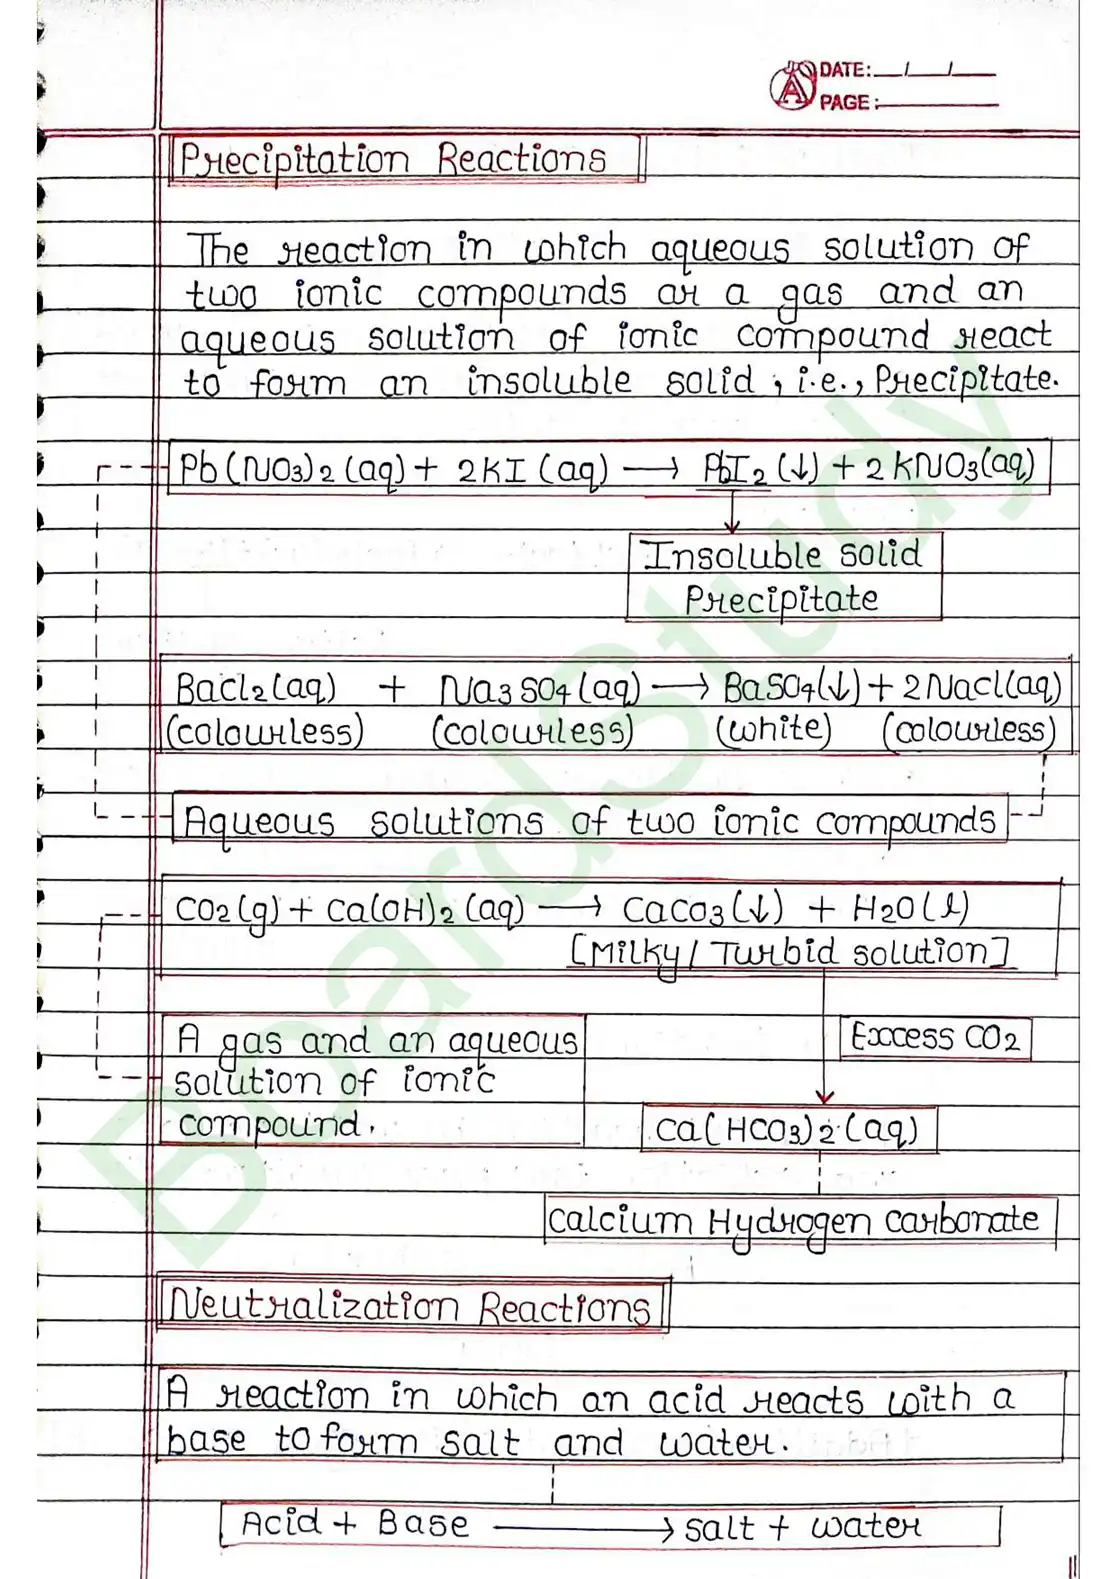 DATE: __/__/__
PAGE :
Precipitation Reactions
The reaction in which aqueous solution of
two ionic compounds or a gas and an
aqueous solution of ionic compound react
to form an insoluble solid, i.e., Precipitate.
Pb(NO3)2(aq) + 2KI(aq) → PbI2(↓) + 2KNO3(aq)
Insoluble solid
Precipitate
BaCl2(aq) + Na3SO4(aq) → BaSO4(↓) + 2NaCl(aq)
(colourless) (colourless) (white) (colourless)
Aqueous solutions of two ionic compounds
CO2(g) + Ca(OH)2(aq) → CaCO3(↓) + H2O(l)
[Milky/Turbid solution]
A gas and an aqueous
solution of ionic
compound.
Excess CO2
Ca(HCO3)2(aq)
Calcium Hydrogen carbonate
Neutralization Reactions
A reaction in which an acid reacts with a
base to form salt and water.
Acid + Base → salt + water
BoardStudy